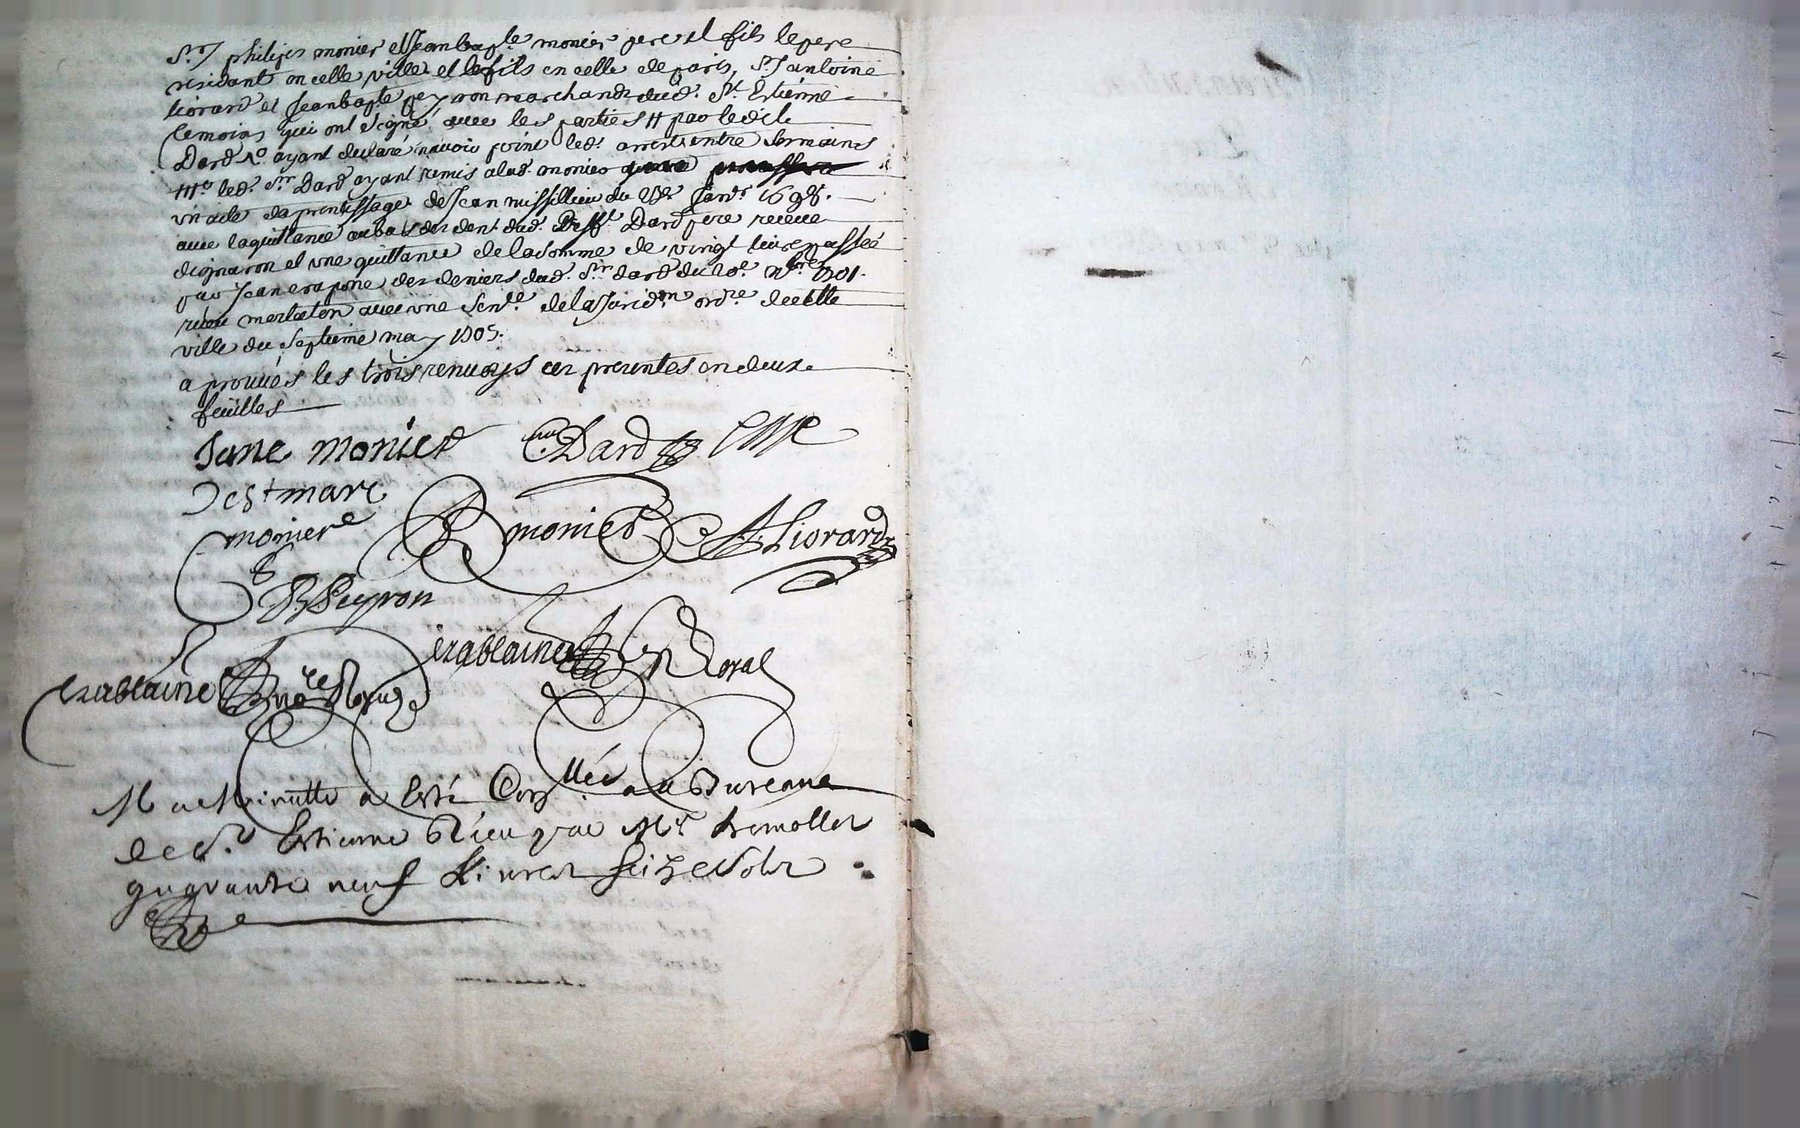 Srs philipes monier et Jeanbapte monier pere et fils le pere
residant en cette ville et le fils en celle de paris, Sr antoine
liorard et Jeanbapte peyron marchands dud. St Estienne
temoins qui ont signé avec les parties # par ledit
Dard ayant declaré navoir point led. arrest entre ses mains
led. Sr Dard ayant remis alad. monier
un acte daprentissage de Jean nissillieu du Janr 1698.
avec la quittance au bas dud. Dard pere receue
dignaron et une quittance de la somme de vingt livre passée
par Jean crapone des deniers dud. Sr dard du 20e 9bre 1701.
receu merlaton avec une sence de la Juridon ordre de cette
ville du septieme may 1705.
aprouvés les trois renvoys ces presentes en deux
feuilles
Jane monier CDard
De st marc
moniere
monier A Liorard
B Peyron
ezablaine Noral
ezablaine nore Royal
La Minutte a Esté Conllée au Bureau
de St. Estienne Receu par Mr tremollet
quarante neuf Livres seize sols